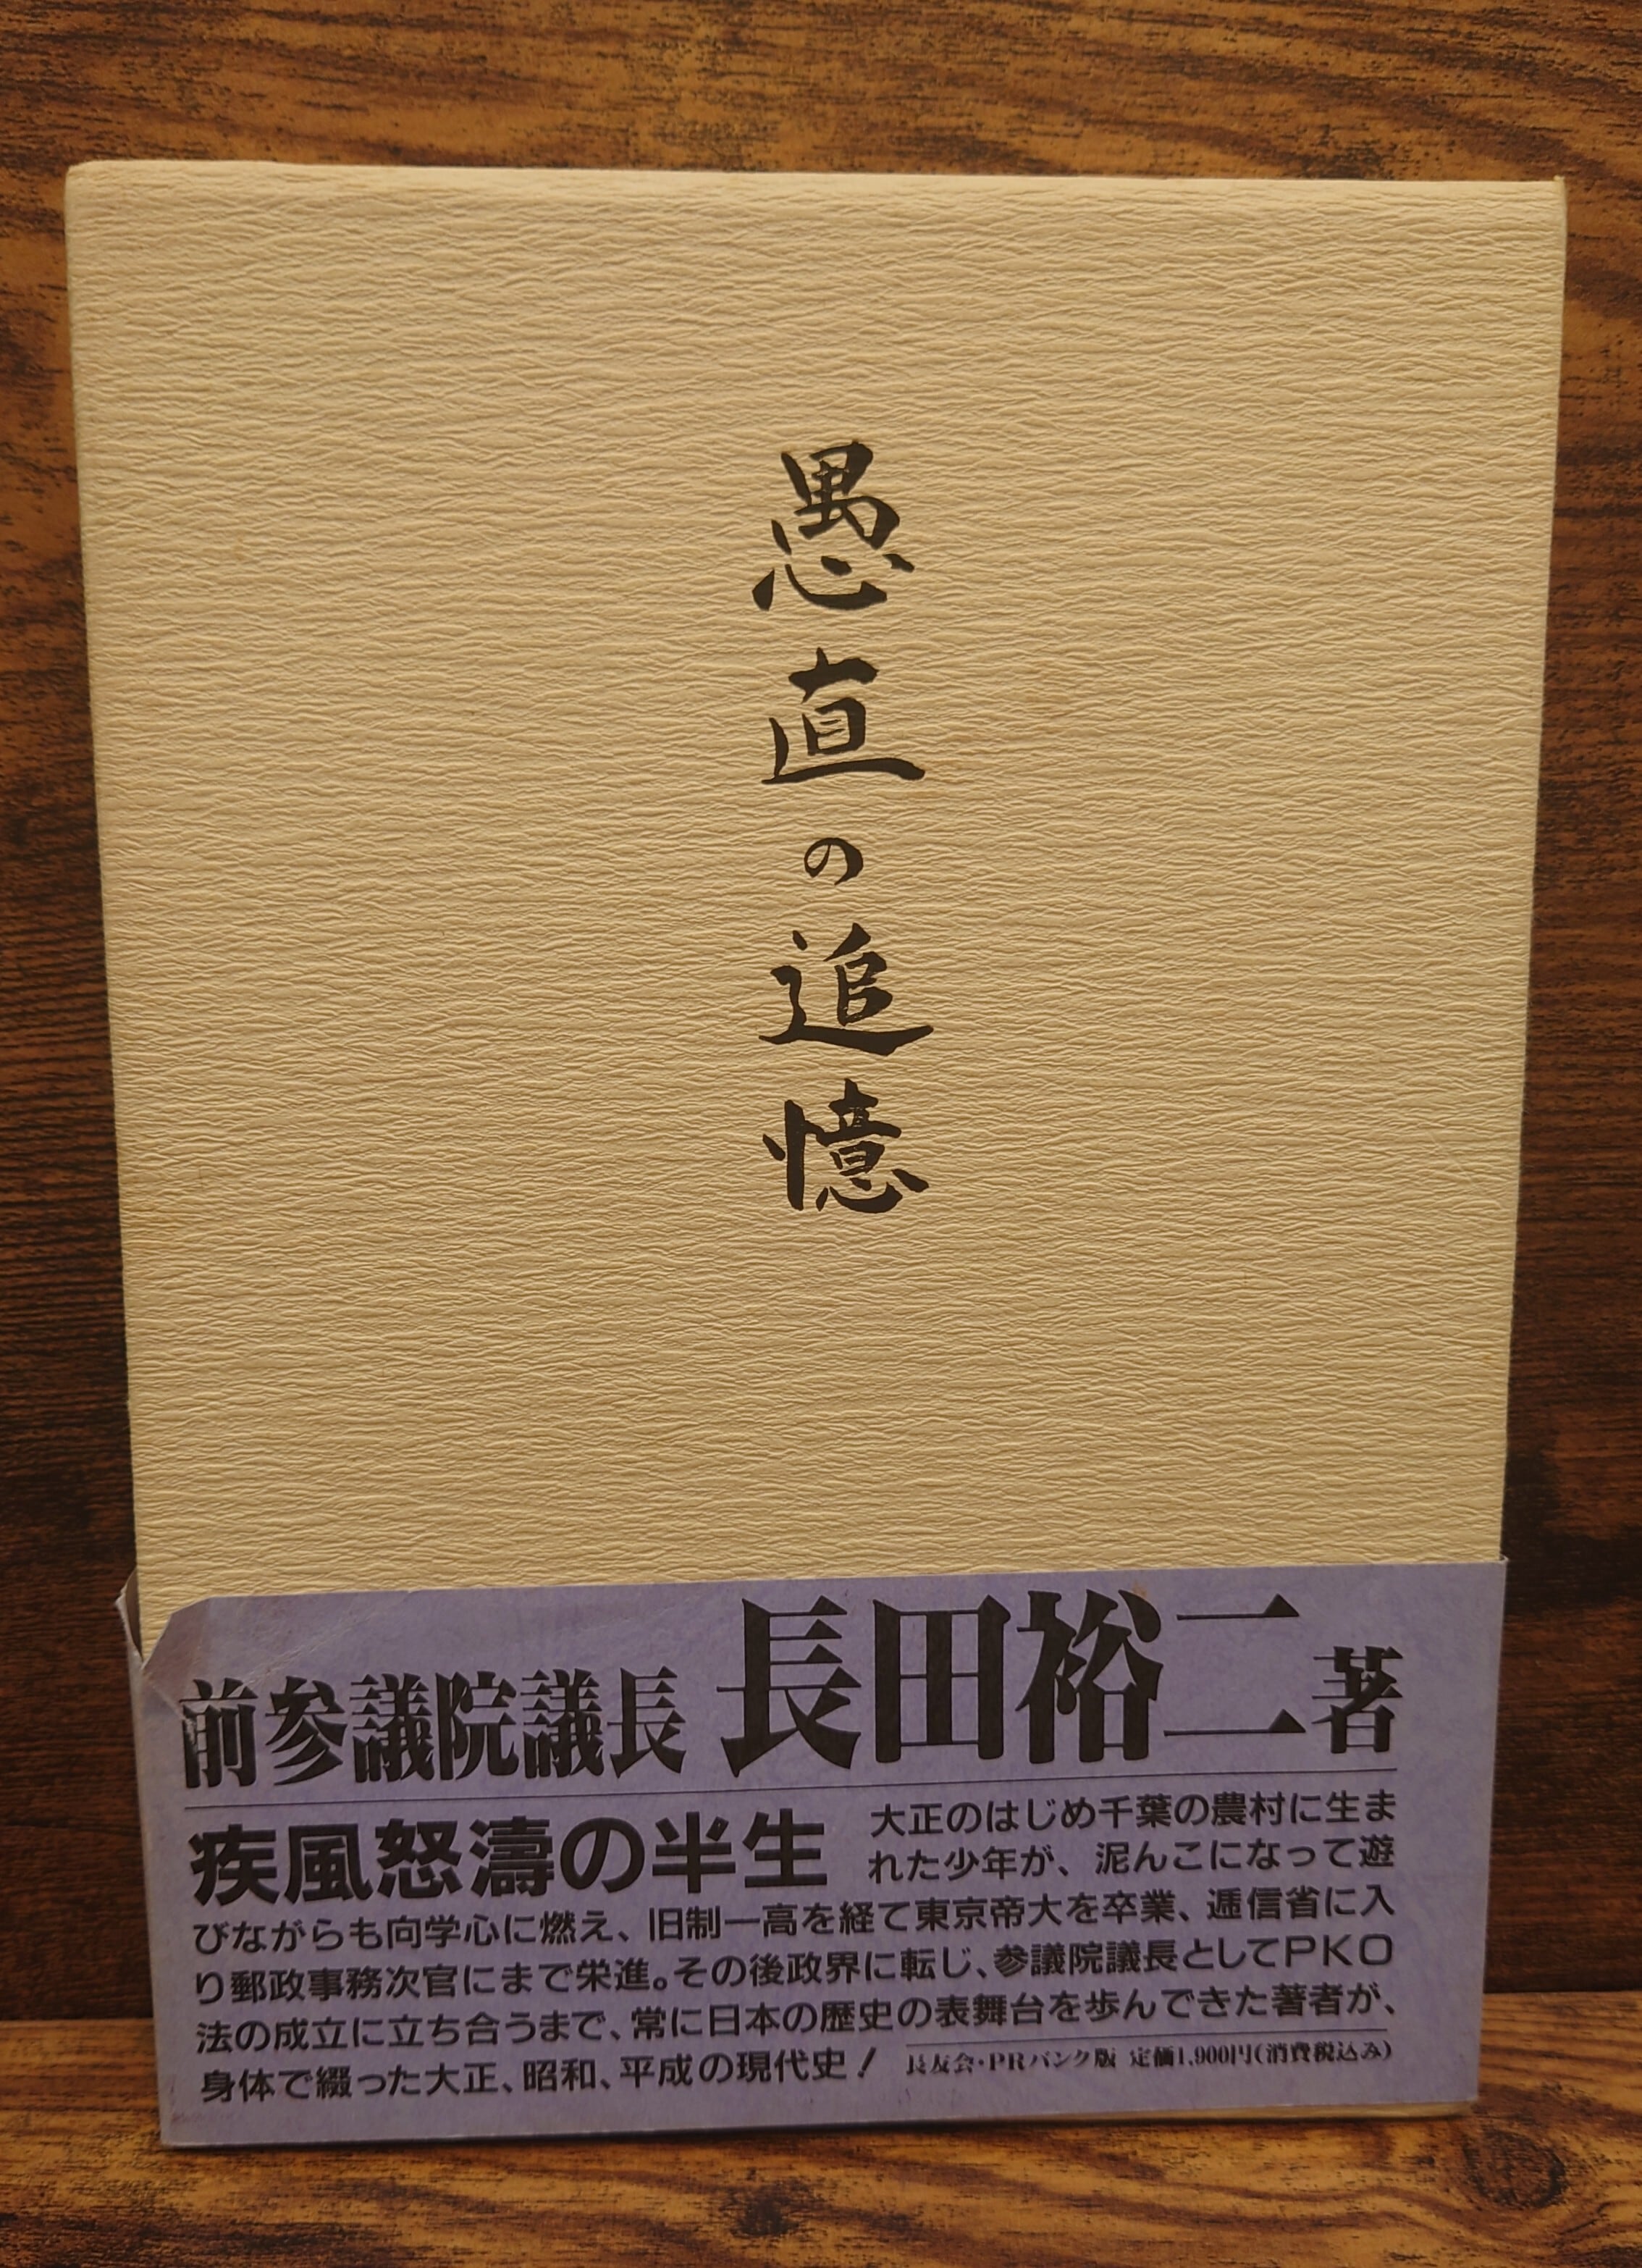 愚直の追憶
前参議院議長 長田裕二 著
疾風怒濤の半生
大正のはじめ千葉の農村に生ま
れた少年が、泥んこになって遊
びながらも向学心に燃え、旧制一高を経て東京帝大を卒業、逓信省に入
り郵政事務次官にまで栄進。その後政界に転じ、参議院議長としてPKO
法の成立に立ち合うまで、常に日本の歴史の表舞台を歩んできた著者が、
身体で綴った大正、昭和、平成の現代史！
長友会・PRバンク版 定価1,900円(消費税込み)